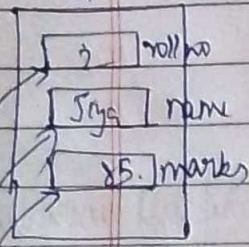 2 roll no
Siya name
85. marks